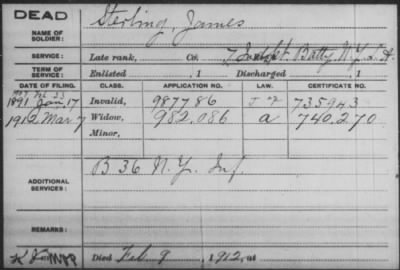 DEAD
Sterling, James
NAME OF SOLDIER:
SERVICE: Late rank, Co. 7 Indpt. Batty. N.Y. L. A.
TERM OF SERVICE: Enlisted , 1 Discharged , 1
DATE OF FILING. CLASS. APPLICATION NO. LAW. CERTIFICATE NO.
1891 Jan. 17 Invalid, 987786 735943
1912 Mar 7 Widow, 982.086 a 740.270
Minor,
ADDITIONAL SERVICES: B 36 N.Y. Inf.
REMARKS:
Died Feb. 9, 1912, at